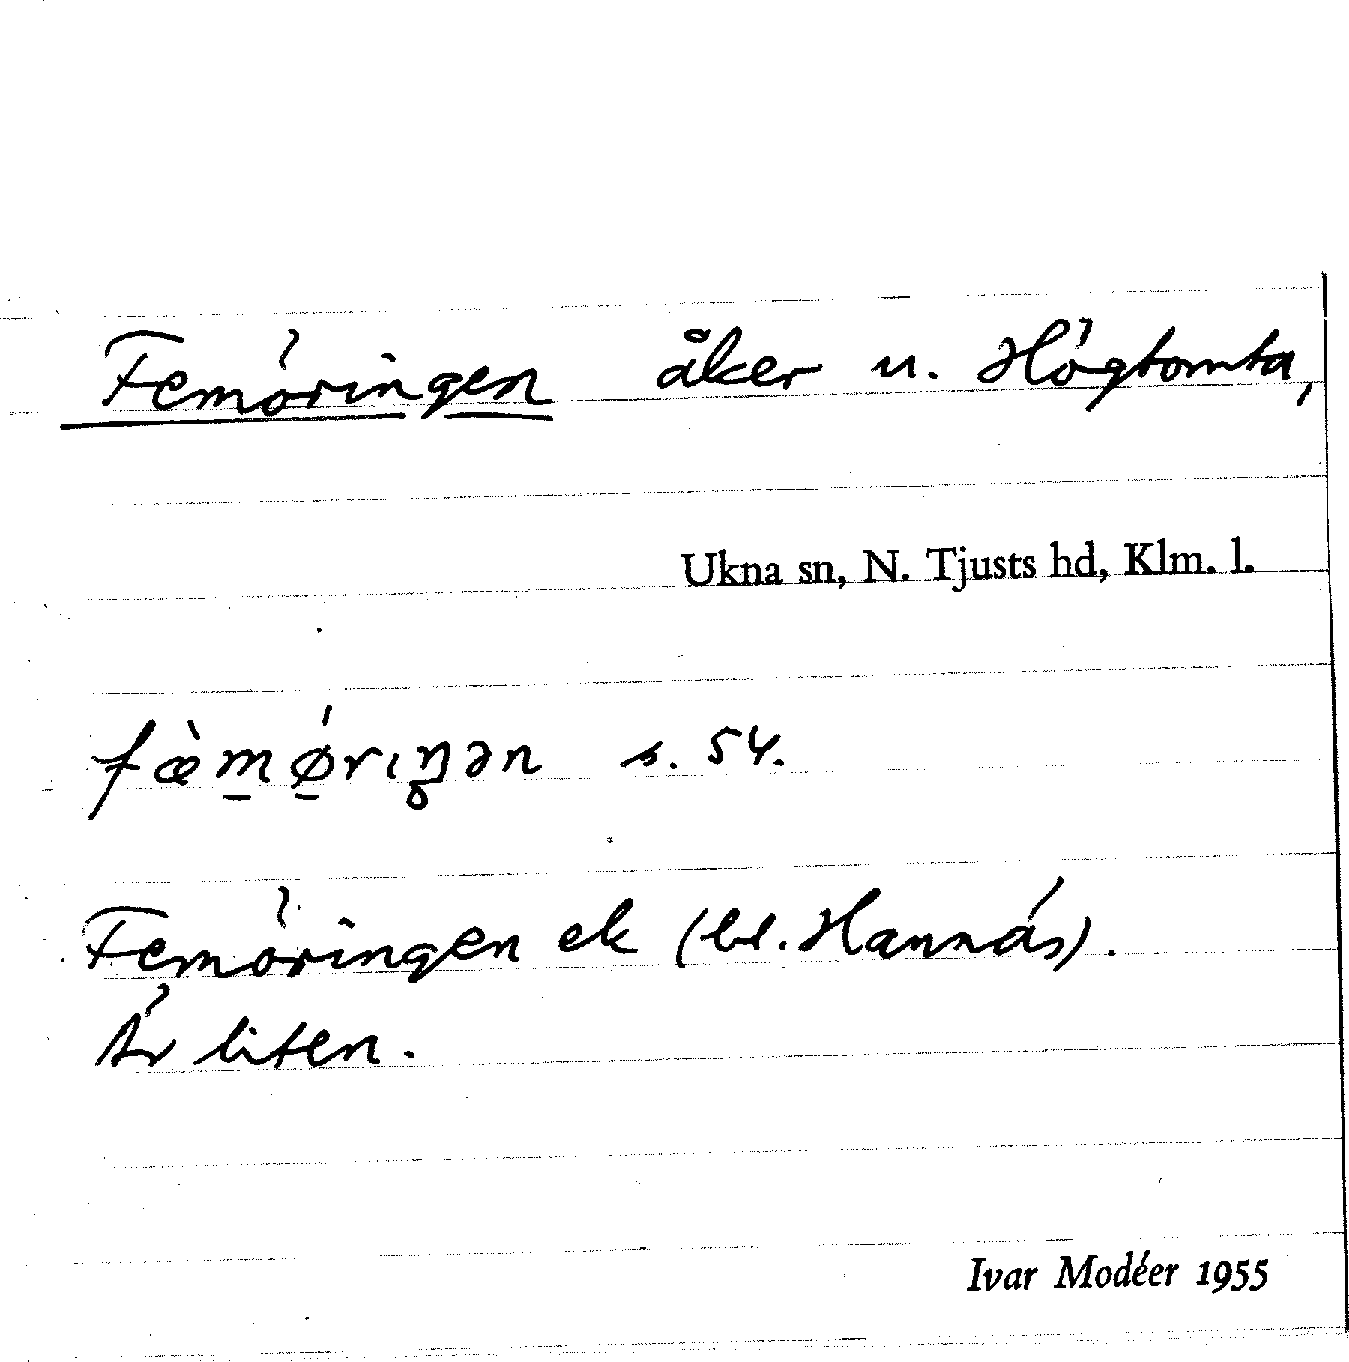 Femöringen åker u. Högtomta,
Ukna sn, N. Tjusts hd, Klm. l.
fæ̀m̠ǿ̠rıŋən s. 54.
Femöringen ek (bl. Hannäs).
Är liten.
Ivar Modéer 1955